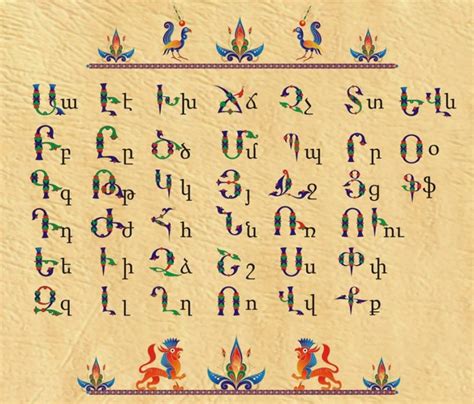 Աա Էէ Խխ Ճճ Չչ Տտ ԵՎև
Բբ Ըը Ծծ Մմ Պպ Րր Օօ
Գգ Թթ Կկ Յյ Ջջ Ցց Ֆֆ
Դդ Ժժ Հհ Նն Ռռ ՈՒու
Եե Իի Ձձ Շշ Սս Փփ
Զզ Լլ Ղղ Ոո Վվ Քք